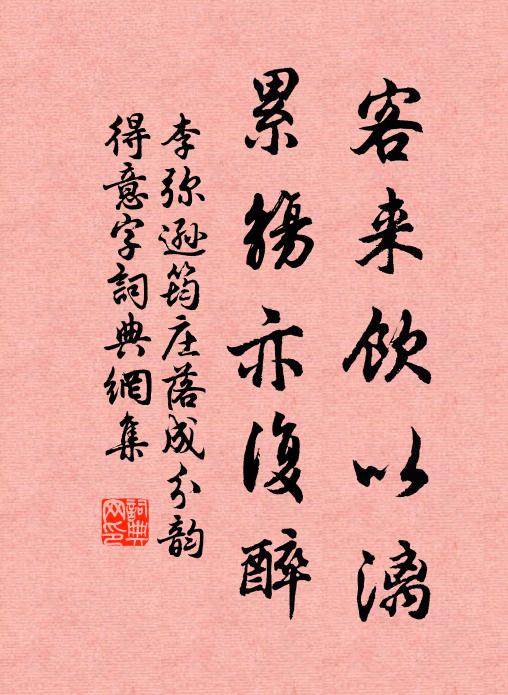 客来飲以漓
累觴亦復醉
李弥遜筠庄落成分韵
得意字詞典網集
詞典网印